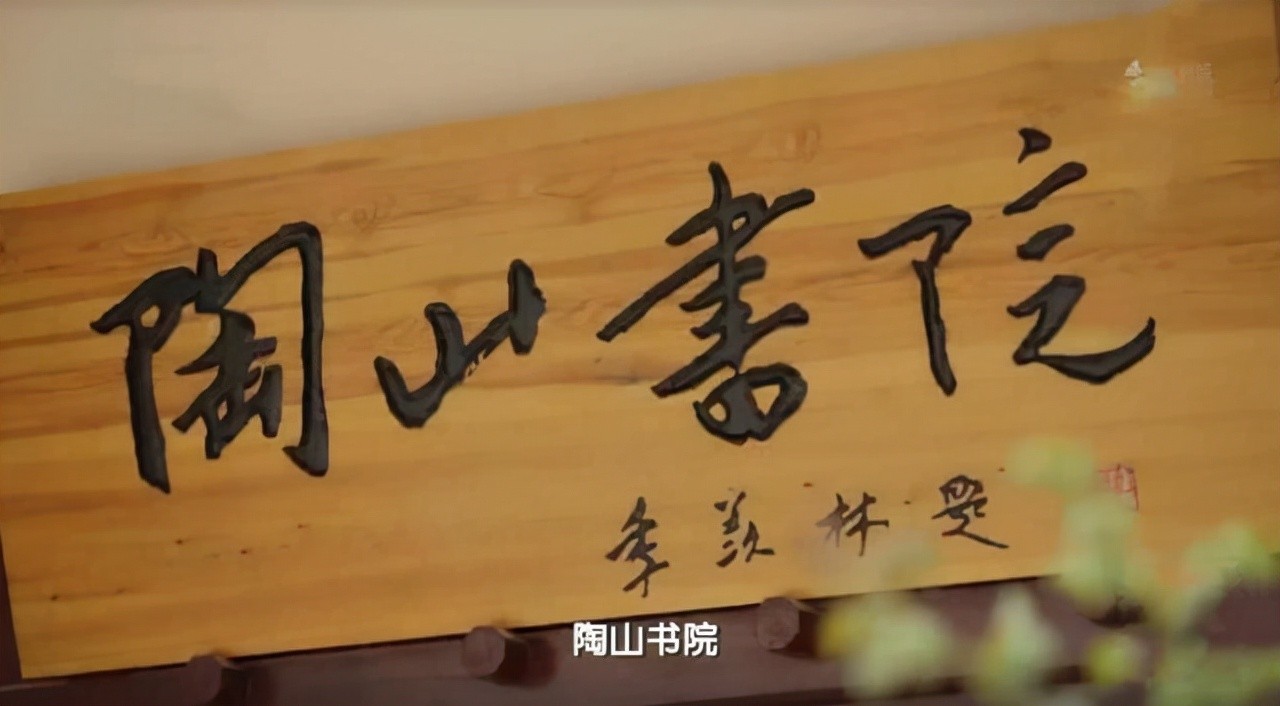 陶山書院
季羡林題
陶山书院